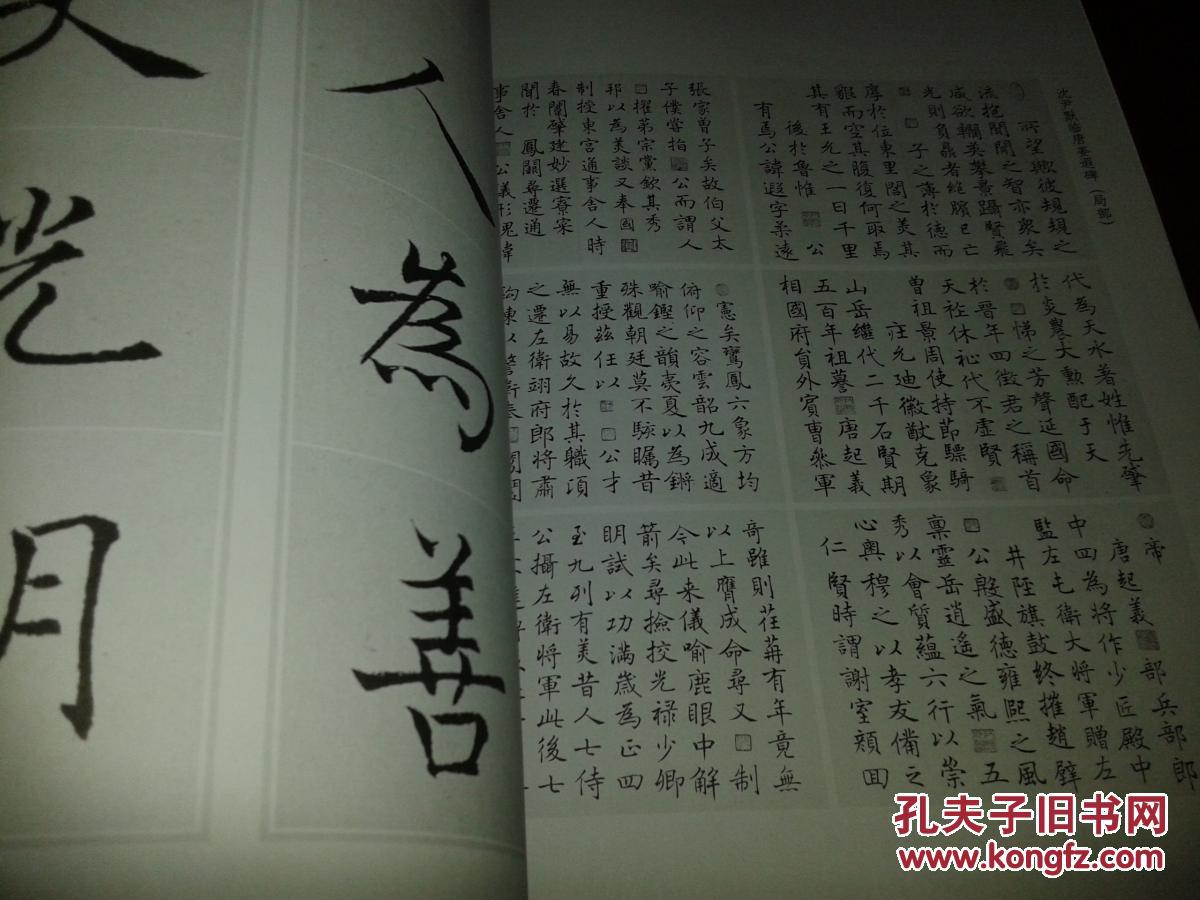 人為善
月
沈尹默临唐姜遐碑（局部）
所望歟彼規規之
流抱聞聞之智亦衆矣
咸欲輶英攀景躡賢飛
光則負鼎者絕臏已亡
子之薄於德而
摩於位東里閭之美其
雞而空其腹復何取焉
其有王允之一日千里
後於魯惟 公
有焉公諱遐字柔遠
張家曾子矣故伯父太
子僕嘗指 公而謂人
擢第宗黨欽其秀
邦以為美談又奉國
制授東宮通事舍人時
春闈肇建妙選寮寀
聞於 鳳闕尋遷通
事舍人 公儀形瑰偉
代為天水著姓惟先肇
於炎農大勲配于天
悌之芳聲延國命
於晉年四徵君之稱首
天祚休祉代不虛賢
曾祖景周使持節驃騎
莊允迪徽猷克象
山岳繼代二千石賢期
五百年祖謩 唐起義
相國府貟外賓曹叅軍
憲矣鸞鳳六象方均
俯仰之容雲韶九成適
喻鏗之韻夷夏以為鏘
殊觀朝廷莫不駭矚昔
重授茲任以 公才
無以易故久於其職項
之遷左衛翊府郎將肅
帝
唐起義 部兵部郎
中四為將作少匠殿中
監左屯衛大將軍贈左
井陘旗鼓終摧趙壁
公般盛德雍熙之風
稟靈岳逍遙之氣 五
秀以會質蘊六行以崇
心奥穆之以孝友備之
仁賢時謂謝室顏回
奇雖則荏苒有年竟無
以上膺成命尋又 制
今此来儀喻鹿眼中解
箭矣尋撿挍光禄少卿
明試以功滿歲為正四
至九列有美昔人七侍
公攝左衛將軍此後七
孔夫子旧书网
www.kongfz.com